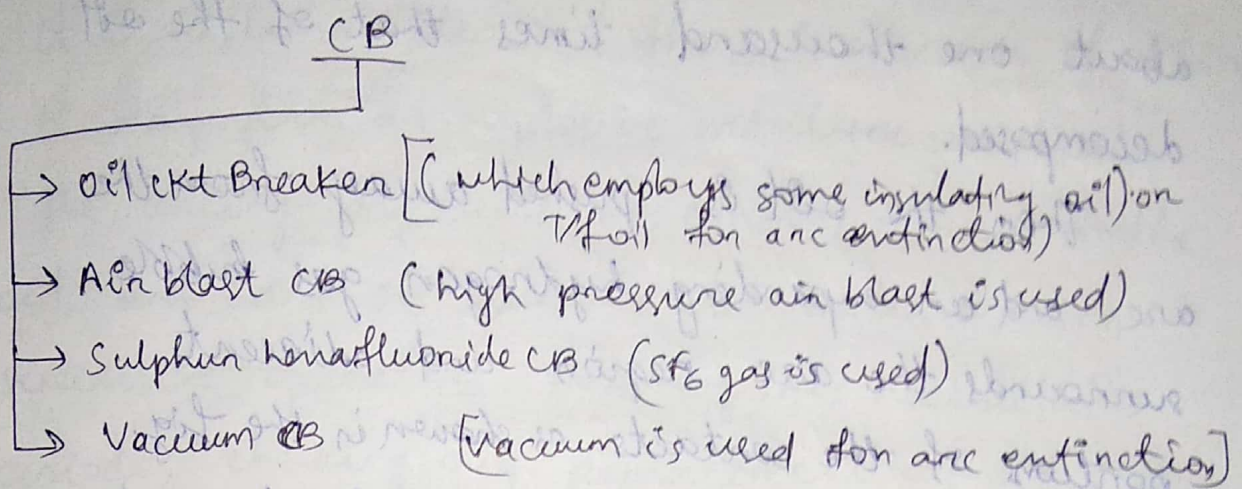 CB
→ Oil ckt Breaker [(which employs some insulating oil) or
T/f oil for arc extinction)
→ Air blast CB (high pressure air blast is used)
→ Sulphur hexafluoride CB (SF6 gas is used)
→ Vacuum CB [vacuum is used for arc extinction]